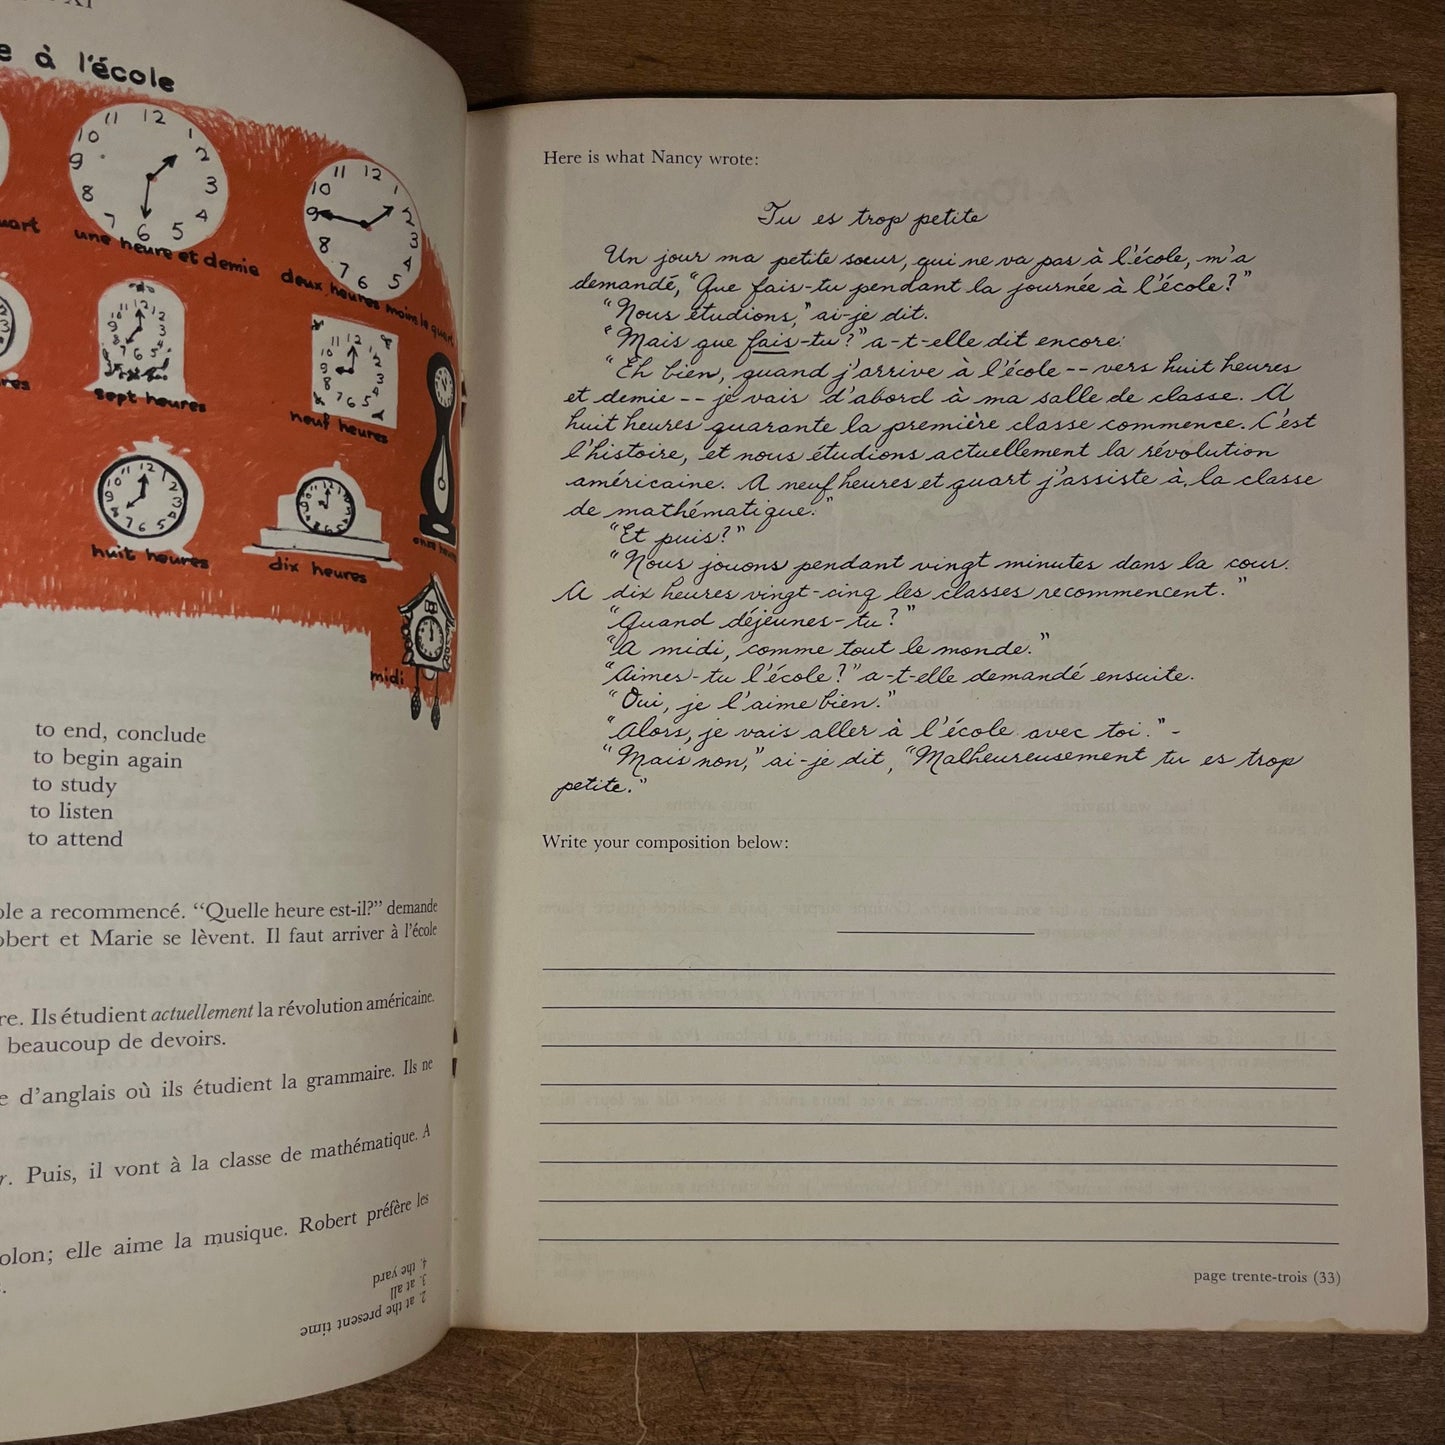 XI
à l'école
une heure et demie
deux heures moins le quart
sept heures
neuf heures
huit heures
dix heures
onze heures
midi
to end, conclude
to begin again
to study
to listen
to attend
a recommencé. “Quelle heure est-il?” demande
et Marie se lèvent. Il faut arriver à l'école
Ils étudient actuellement la révolution américaine.
beaucoup de devoirs.
d'anglais où ils étudient la grammaire. Ils ne
Puis, il vont à la classe de mathématique. A
elle aime la musique. Robert préfère les
2. at the present time
3. at all
4. the yard
Here is what Nancy wrote:
Tu es trop petite
Un jour ma petite soeur, qui ne va pas à l'école, m'a
demandé, "Que fais-tu pendant la journée à l'école?"
"Nous étudions," ai-je dit.
"Mais que fais-tu?" a-t-elle dit encore.
"Eh bien, quand j'arrive à l'école -- vers huit heures
et demie -- je vais d'abord à ma salle de classe. A
huit heures quarante la première classe commence. C'est
l'histoire, et nous étudions actuellement la révolution
américaine. A neuf heures et quart j'assiste à la classe
de mathématique."
"Et puis?"
"Nous jouons pendant vingt minutes dans la cour.
A dix heures vingt-cinq les classes recommencent."
"Quand déjeunes-tu?"
"A midi, comme tout le monde."
"Aimes-tu l'école?" a-t-elle demandé ensuite.
"Oui, je l'aime bien."
"Alors, je vais aller à l'école avec toi."-
"Mais non," ai-je dit, "Malheureusement tu es trop
petite."
Write your composition below:
page trente-trois (33)